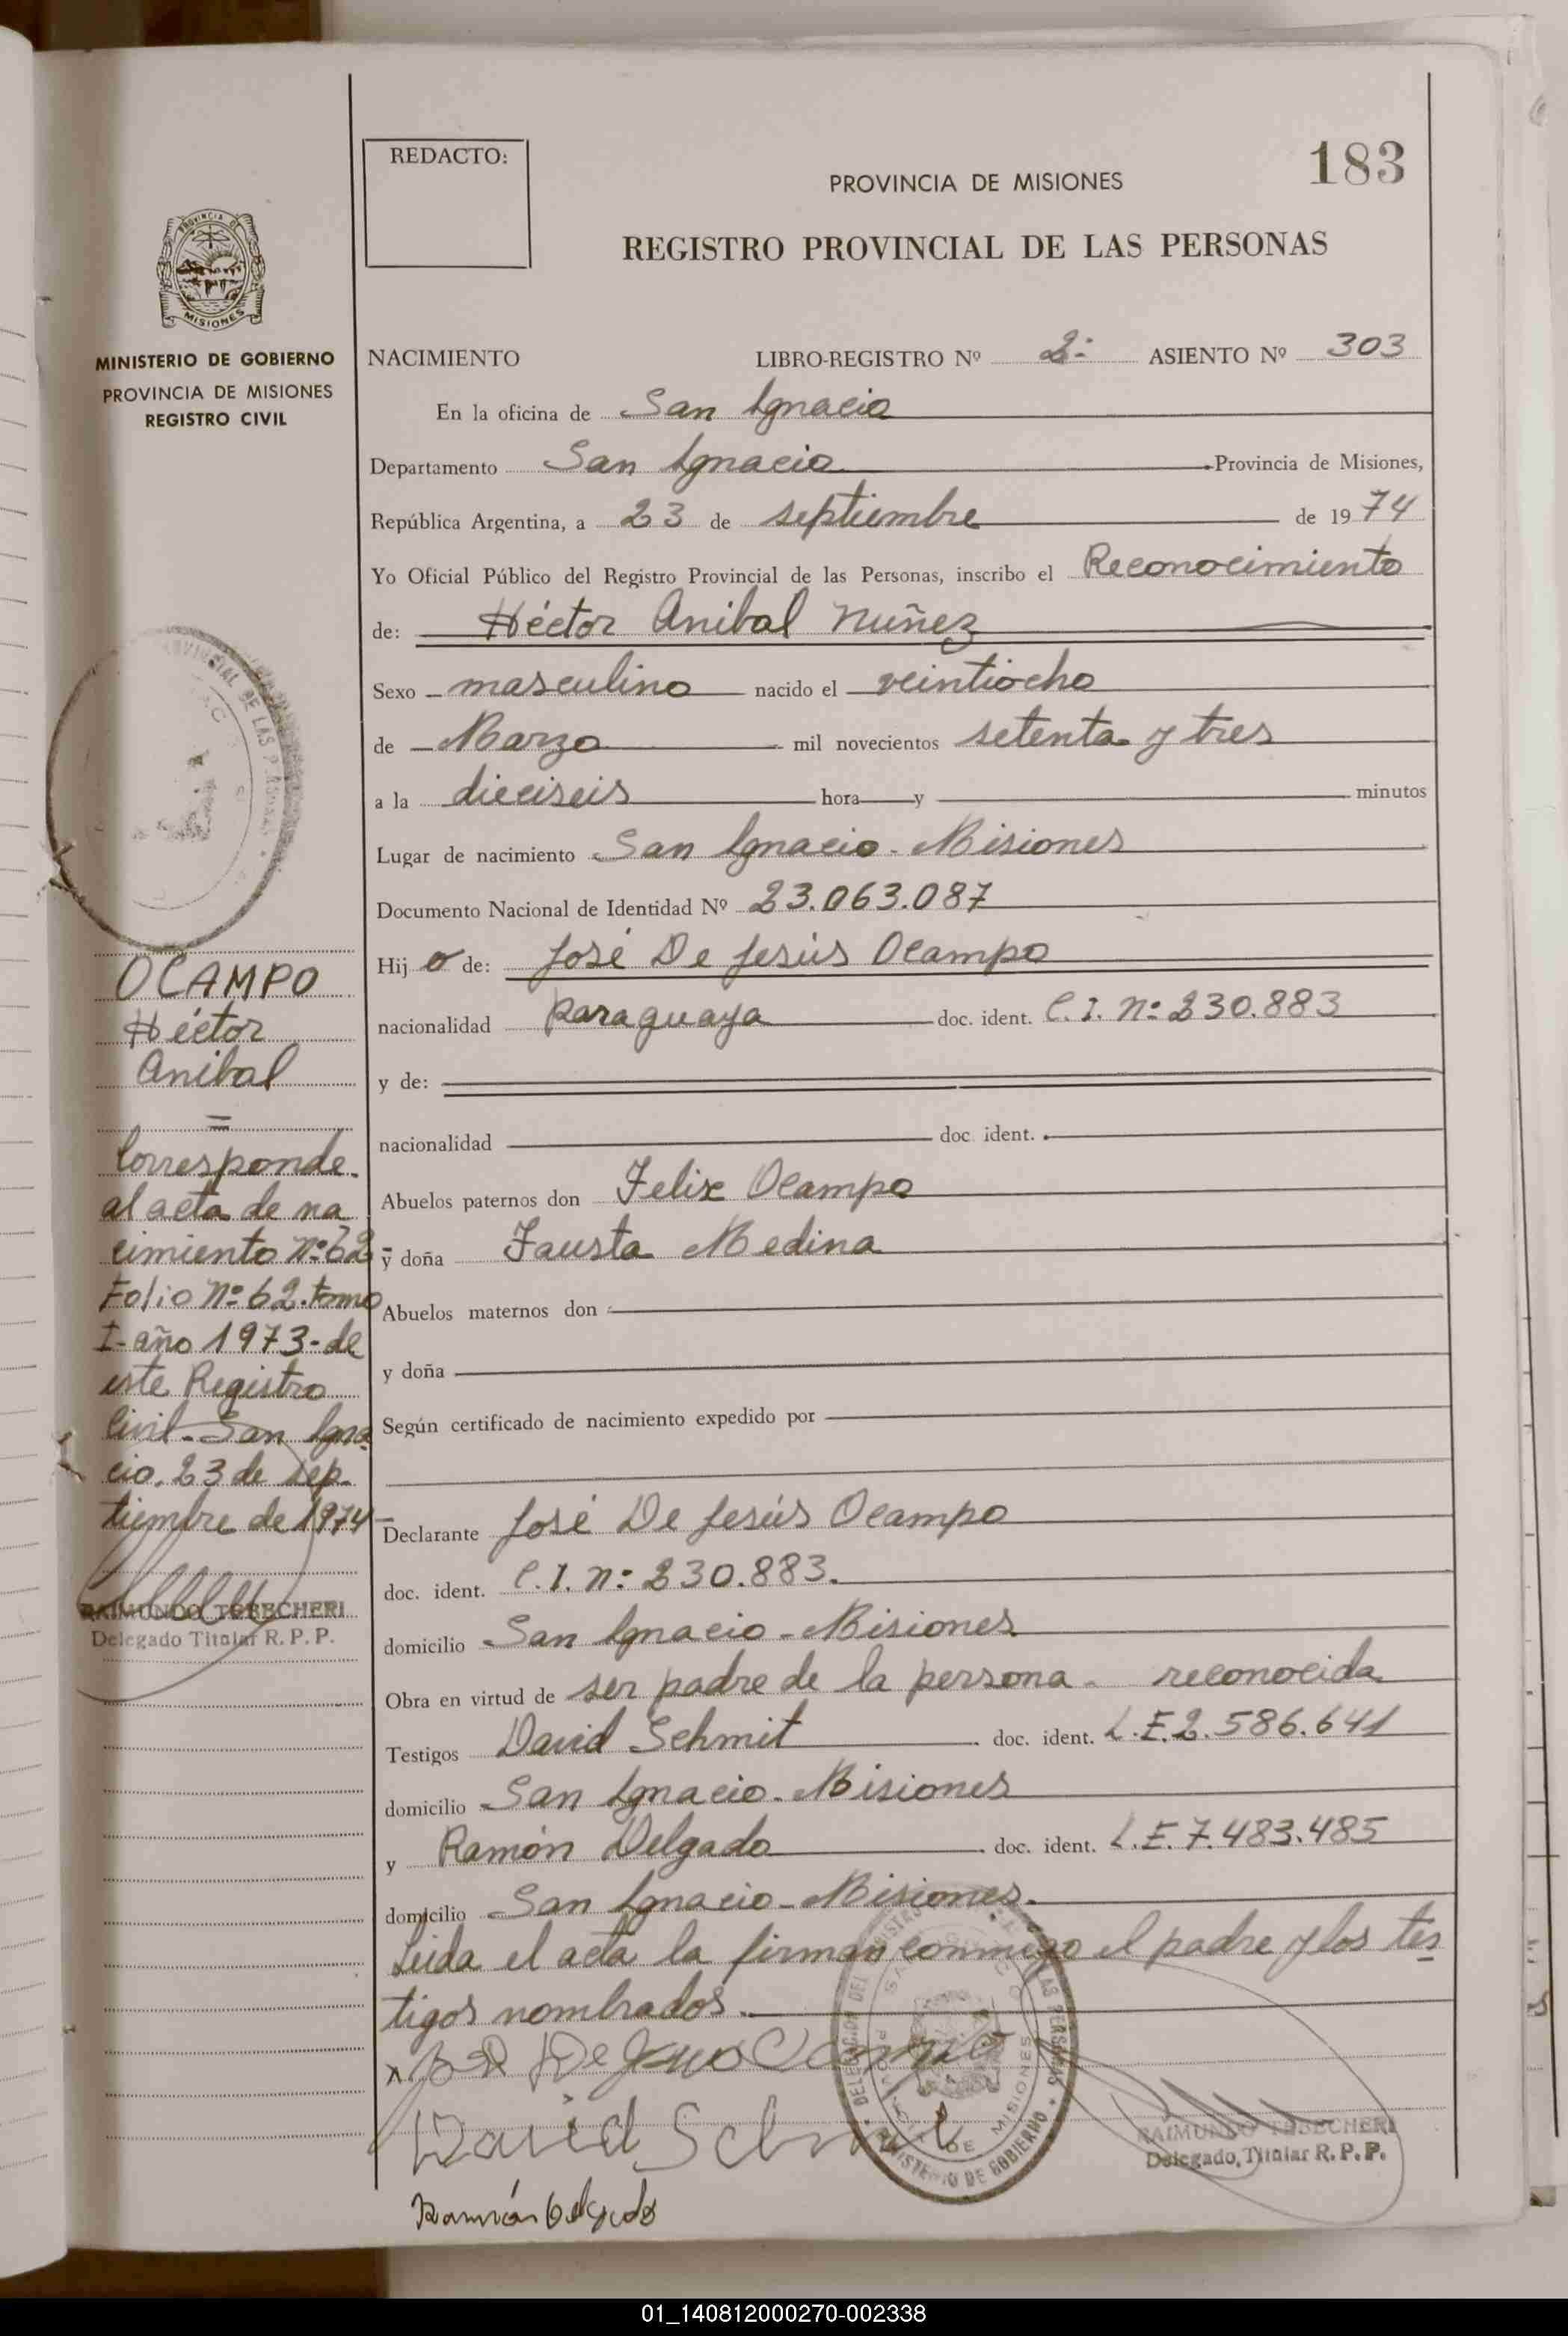 183
REDACTO:
PROVINCIA DE MISIONES
REGISTRO PROVINCIAL DE LAS PERSONAS
PROVINCIA DE
MISIONES
MINISTERIO DE GOBIERNO
PROVINCIA DE MISIONES
REGISTRO CIVIL
NACIMIENTO LIBRO-REGISTRO Nº 2º ASIENTO Nº 303
En la oficina de San Ignacio
Departamento San Ignacio Provincia de Misiones,
República Argentina, a 23 de septiembre de 1974
Yo Oficial Público del Registro Provincial de las Personas, inscribo el Reconocimiento
de: Héctor Anibal Nuñez
Sexo masculino nacido el veintiocho
de Marzo mil novecientos setenta y tres
a la dieciseis hora y minutos
Lugar de nacimiento San Ignacio - Misiones
Documento Nacional de Identidad Nº 23.063.087
Hij o de: José De Jesús Ocampo
nacionalidad paraguaya doc. ident. C.I. Nº 230.883
y de:
nacionalidad doc. ident.
Abuelos paternos don Felix Ocampo
y doña Fausta Medina
Abuelos maternos don
y doña
Según certificado de nacimiento expedido por
Declarante José De Jesús Ocampo
doc. ident. C.I. nº 230.883.
domicilio San Ignacio - Misiones
Obra en virtud de ser padre de la persona reconocida
Testigos David Schmit doc. ident. L.E. 2.586.641
domicilio San Ignacio - Misiones
y Ramón Delgado doc. ident. L.E. 7.483.485
domicilio San Ignacio - Misiones.
Leida el acta la firman conmigo el padre y los tes
tigos nombrados.
De Jesus Ocampo
David Schmit
Ramón Delgado
DELEGACION DEL REGISTRO LAS PERSONAS
MINISTERIO DE GOBIERNO
DE MISIONES
RAIMUNDO TEBECHERI
Delegado Titular R. P. P.
PROVINCIAL DE LAS PERSONAS
OCAMPO
Héctor
Anibal
=
Corresponde
al acta de na
cimiento Nº 62
Folio Nº 62. tomo
I- año 1973- de
este Registro
Civil. San Igna
cio. 23 de sep-
tiembre de 1974-
RAIMUNDO TEBECHERI
Delegado Titular R. P. P.
01_140812000270-002338